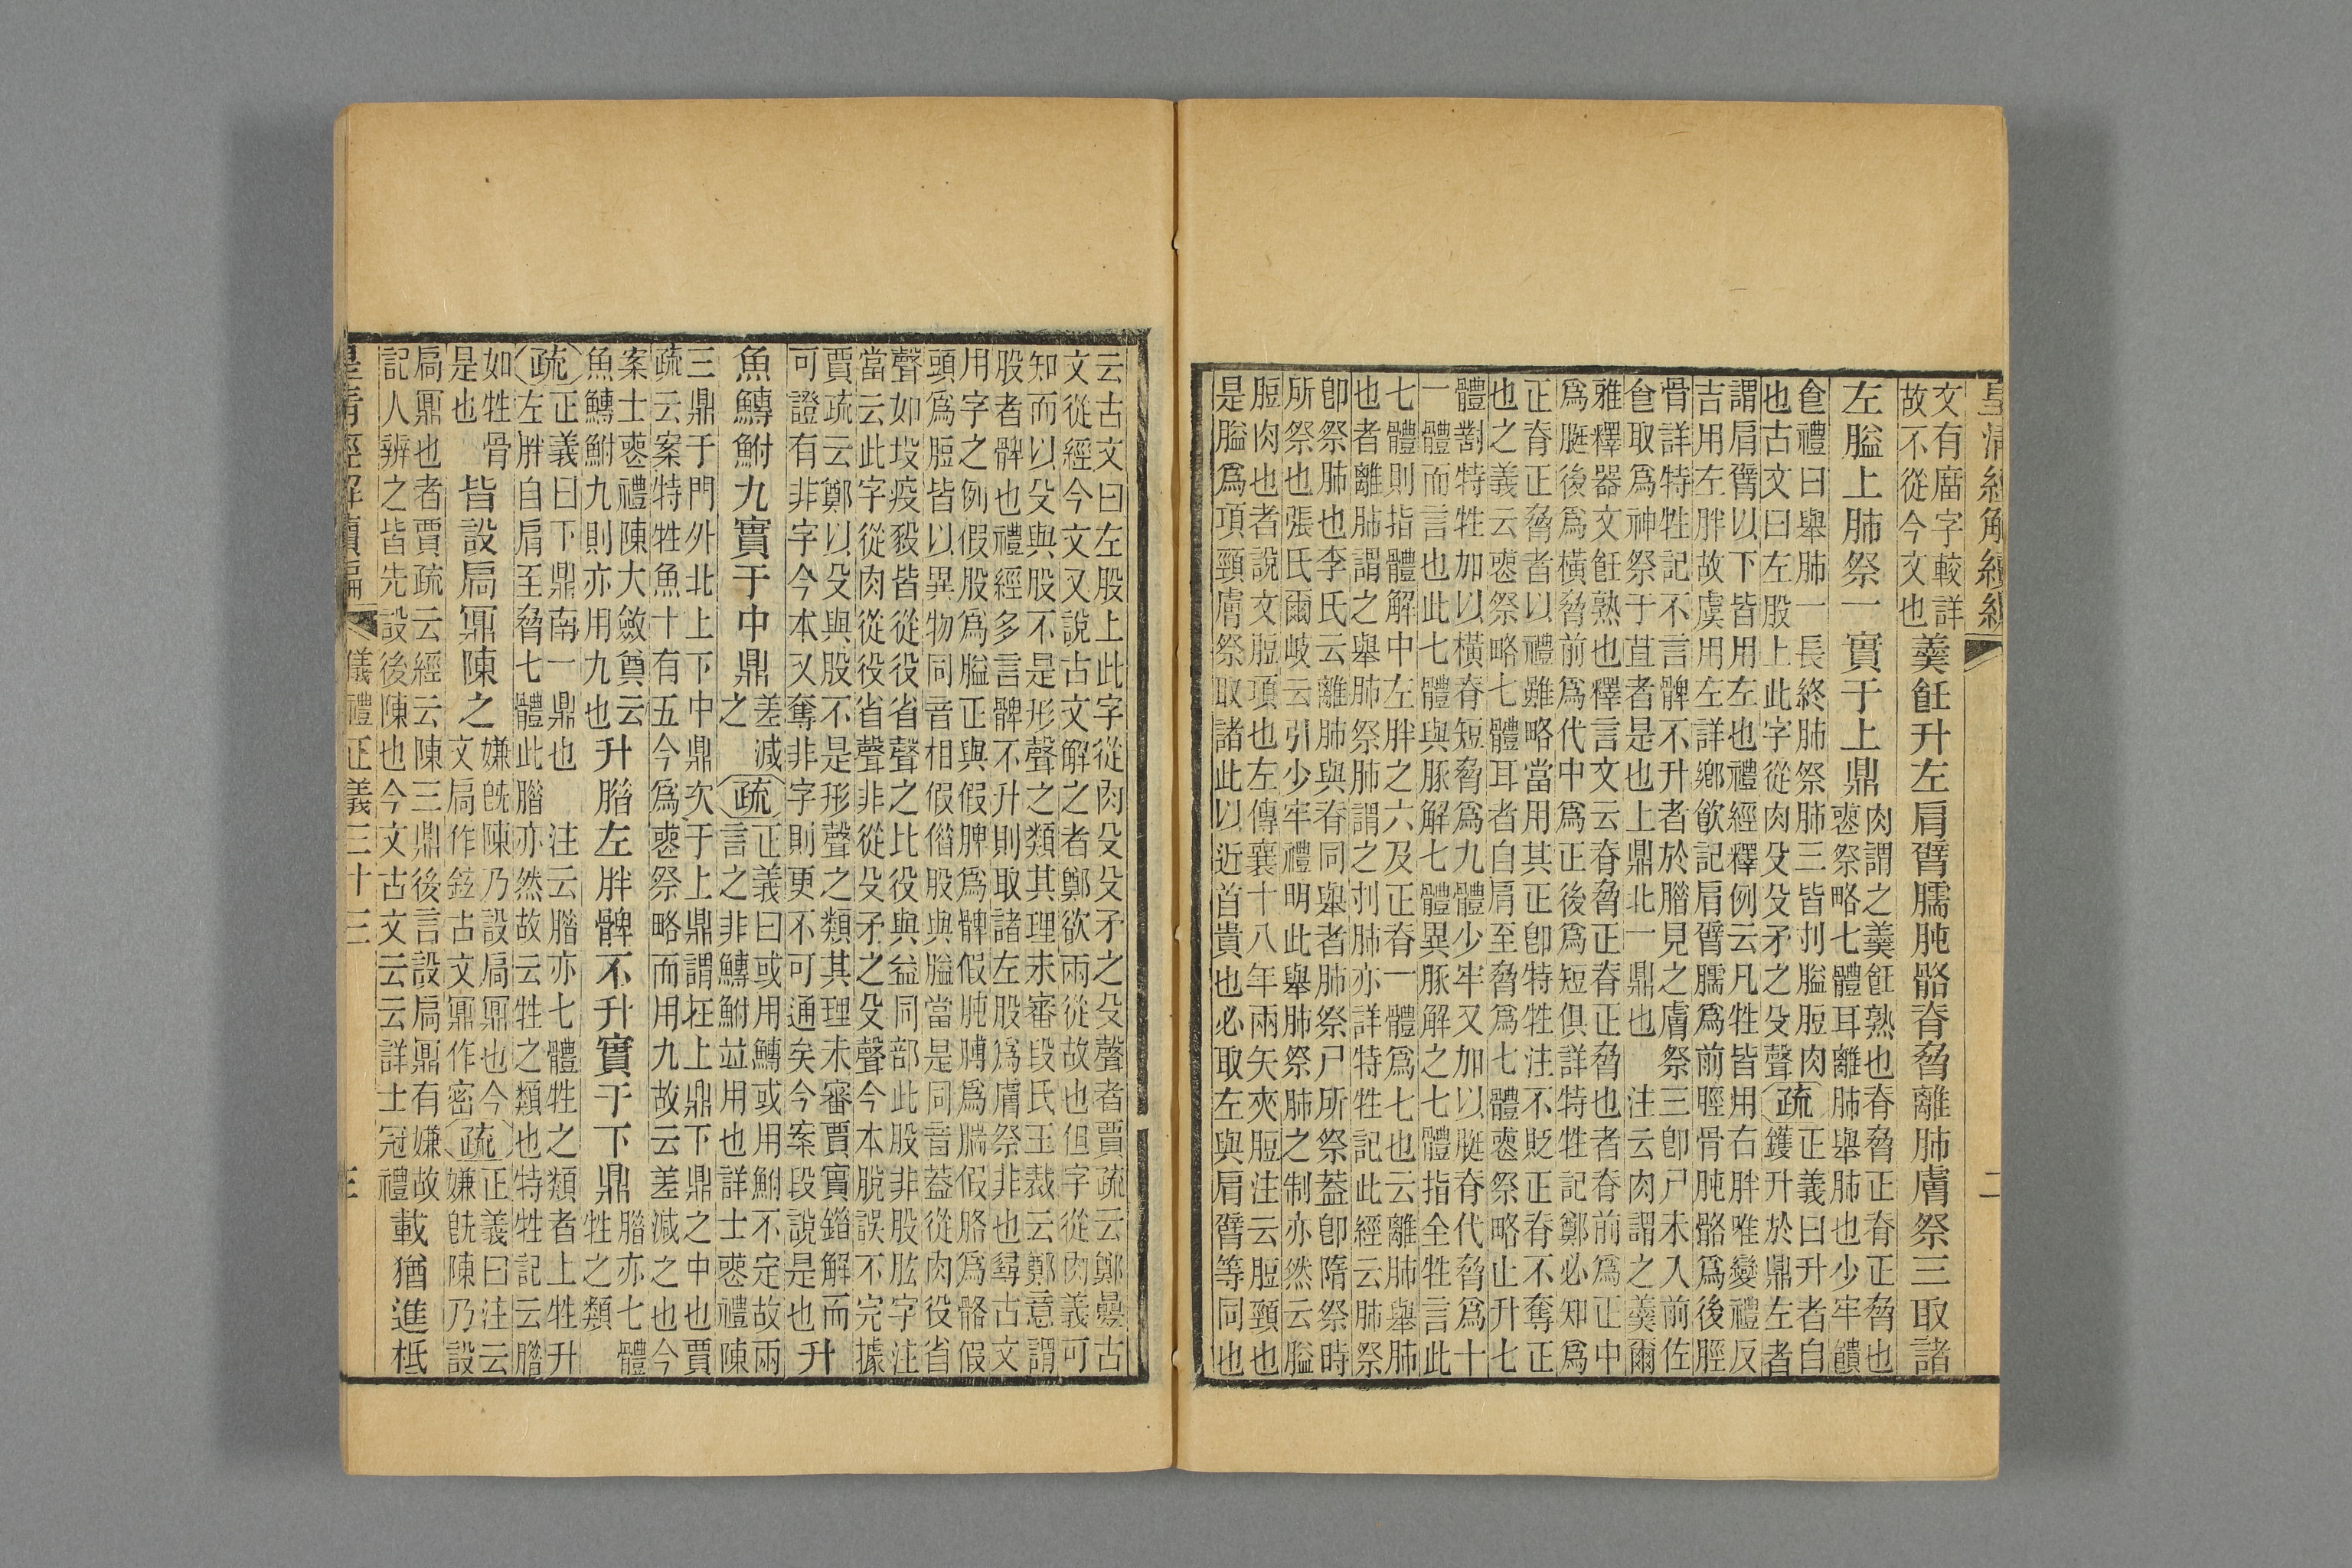 皇清經解續
二
文有廇字較詳
故不從今文也
羹飪升左肩臂臑肫骼脊脅離肺膚祭三取諸
左膉上肺祭一實于上鼎
肉謂之羹飪熟也脊脅正脊正脅也
喪祭略七體耳離肺舉肺也少牢饋
食禮曰舉肺一長終肺祭肺三皆刌膉脰肉
也古文曰左股上此字從肉殳殳矛之殳聲
疏
正義曰升者自
鑊升於鼎左者
謂肩臂以下皆用左也禮經釋例云凡牲皆用右胖唯變禮反
吉用左胖故虞用左詳鄉飲記肩臂臑爲前脛骨肫骼爲後脛
骨詳特牲記不言髀不升者於腊見之膚祭三卽尸未入前佐
食取爲神祭于苴者是也上鼎北一鼎也 注云肉謂之羹爾
雅釋器文飪熟也釋言文云脊脅正脊正脅也者脊前爲正中
爲脡後爲橫脅前爲代中爲正後爲短俱詳特牲記鄭必知爲
正脊正脅者以禮雖略當用其正卽特牲注不貶正脊不奪正
也之義云喪祭略七體耳者自肩至脅爲七體喪祭略止升七
體劄特牲加以橫脊短脅爲九體少牢又加以脡脊代脅爲十
一體而言也此七體與豚解七體異豚解之七體指全牲言此
七體則指體解中左胖之六及正脊一體爲七也云離肺舉肺
也者離肺謂之舉肺祭肺謂之刌肺亦詳特牲記此經云肺祭
卽祭肺也李氏云離肺與脊同舉者肺祭尸所祭蓋卽隋祭時
所祭也張氏爾岐云引少牢禮明此舉肺祭肺之制亦然云膉
脰肉也者說文脰項也左傳襄十八年兩矢夾脰注云脰頸也
是膉爲項頸膚祭取諸此以近首貴也必取左與肩臂等同也
云古文曰左股上此字從肉殳殳矛之殳聲者賈疏云鄭曡古
文從經今文又說古文解之者鄭欲兩從故也但字從肉義可
知而以殳與股不是形聲之類其理未審段氏玉裁云鄭意謂
股者髀也禮經多言髀不升則取諸左股爲膚祭非也尋古文
用字之例假股爲膉正與假脾爲髀假肫膞爲腨假胳爲骼假
頭爲脰皆以異物同音相假偕股與膉當是同音蓋從肉役省
聲如坄疫毅皆從役省聲之比役與益同部此股非股肱字注
當云此字從肉從役省聲非從殳矛之殳聲今本脫誤不完據
賈疏云鄭以殳與股不是形聲之類其理未審賈實錯解而
可證有非字今本又奪非字則更不可通矣今案段說是也
升
魚鱄鮒九實于中鼎
差減
之
疏
正義曰或用鱄或用鮒不定故兩
言之非鱄鮒竝用也詳士喪禮陳
三鼎于門外北上下中鼎次于上鼎謂在上鼎下鼎之中也賈
疏云案特牲魚十有五今爲喪祭略而用九故云差減之也今
案士喪禮陳大斂奠云
魚鱄鮒九則亦用九也
升腊左胖髀不升實于下鼎
腊亦七體
牲之類
疏
正義曰下鼎南一鼎也 注云腊亦七體牲之類者上牲升
左胖自肩至脅七體此腊亦然故云牲之類也特牲記云腊
如牲骨
是也
皆設扃鼏陳之
嫌旣陳乃設扃鼏也今
文扃作鉉古文鼏作密
疏
正義曰注云
嫌旣陳乃設
扃鼏也者賈疏云經云陳三鼎後言設扃鼏有嫌故
記人辨之皆先設後陳也今文古文云云詳士冠禮
載猶進柢
皇清經解續編
儀禮正義三十三
三